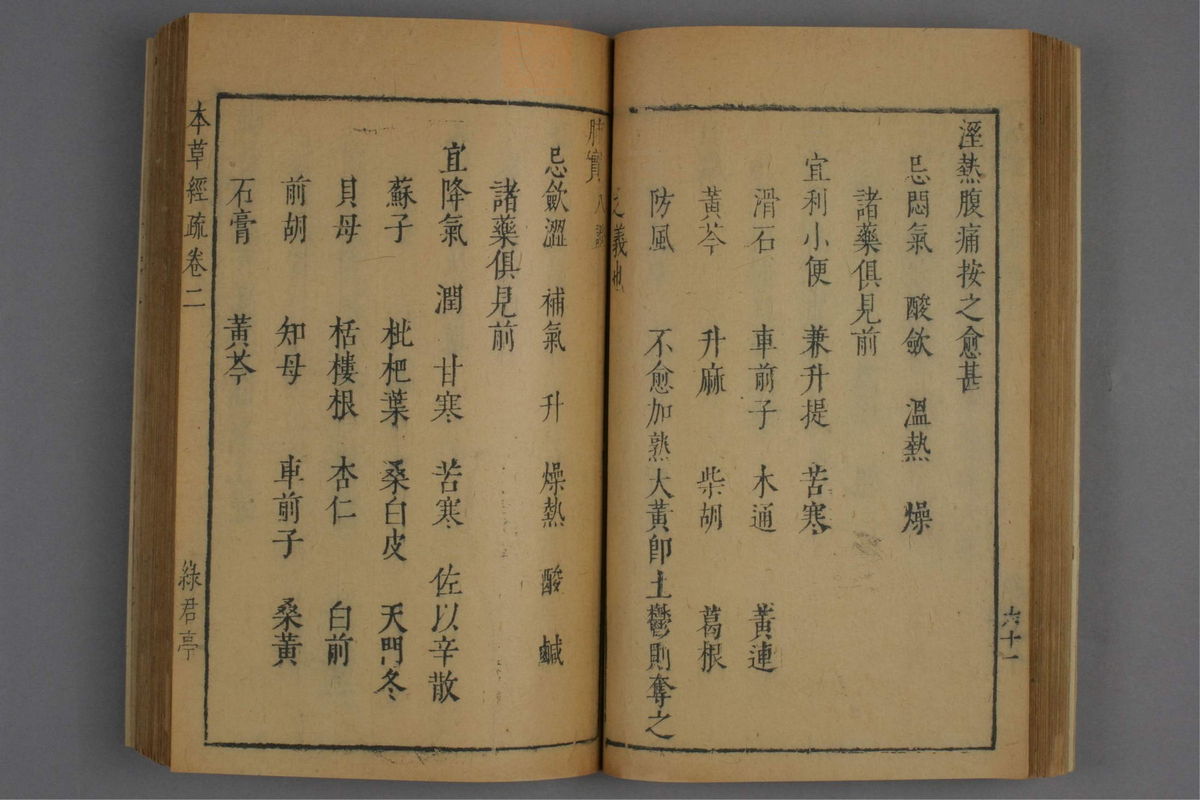 溼熱腹痛按之愈甚
忌悶氣　酸斂　溫熱　燥
諸藥俱見前
宜利小便　兼升提　苦寒
滑石　車前子　木通　黃連
黃芩　升麻　柴胡　葛根
防風　不愈加熟大黃卽土鬱則奪之
之義也
六十一
肺實八證
忌斂澀　補氣　升　燥熱　酸　鹹
諸藥俱見前
宜降氣　潤　甘寒　苦寒　佐以辛散
蘇子　枇杷葉　桑白皮　天門冬
貝母　栝樓根　杏仁　白前
前胡　知母　車前子　桑黃
石膏　黃芩
本草經疏卷二
綠君亭